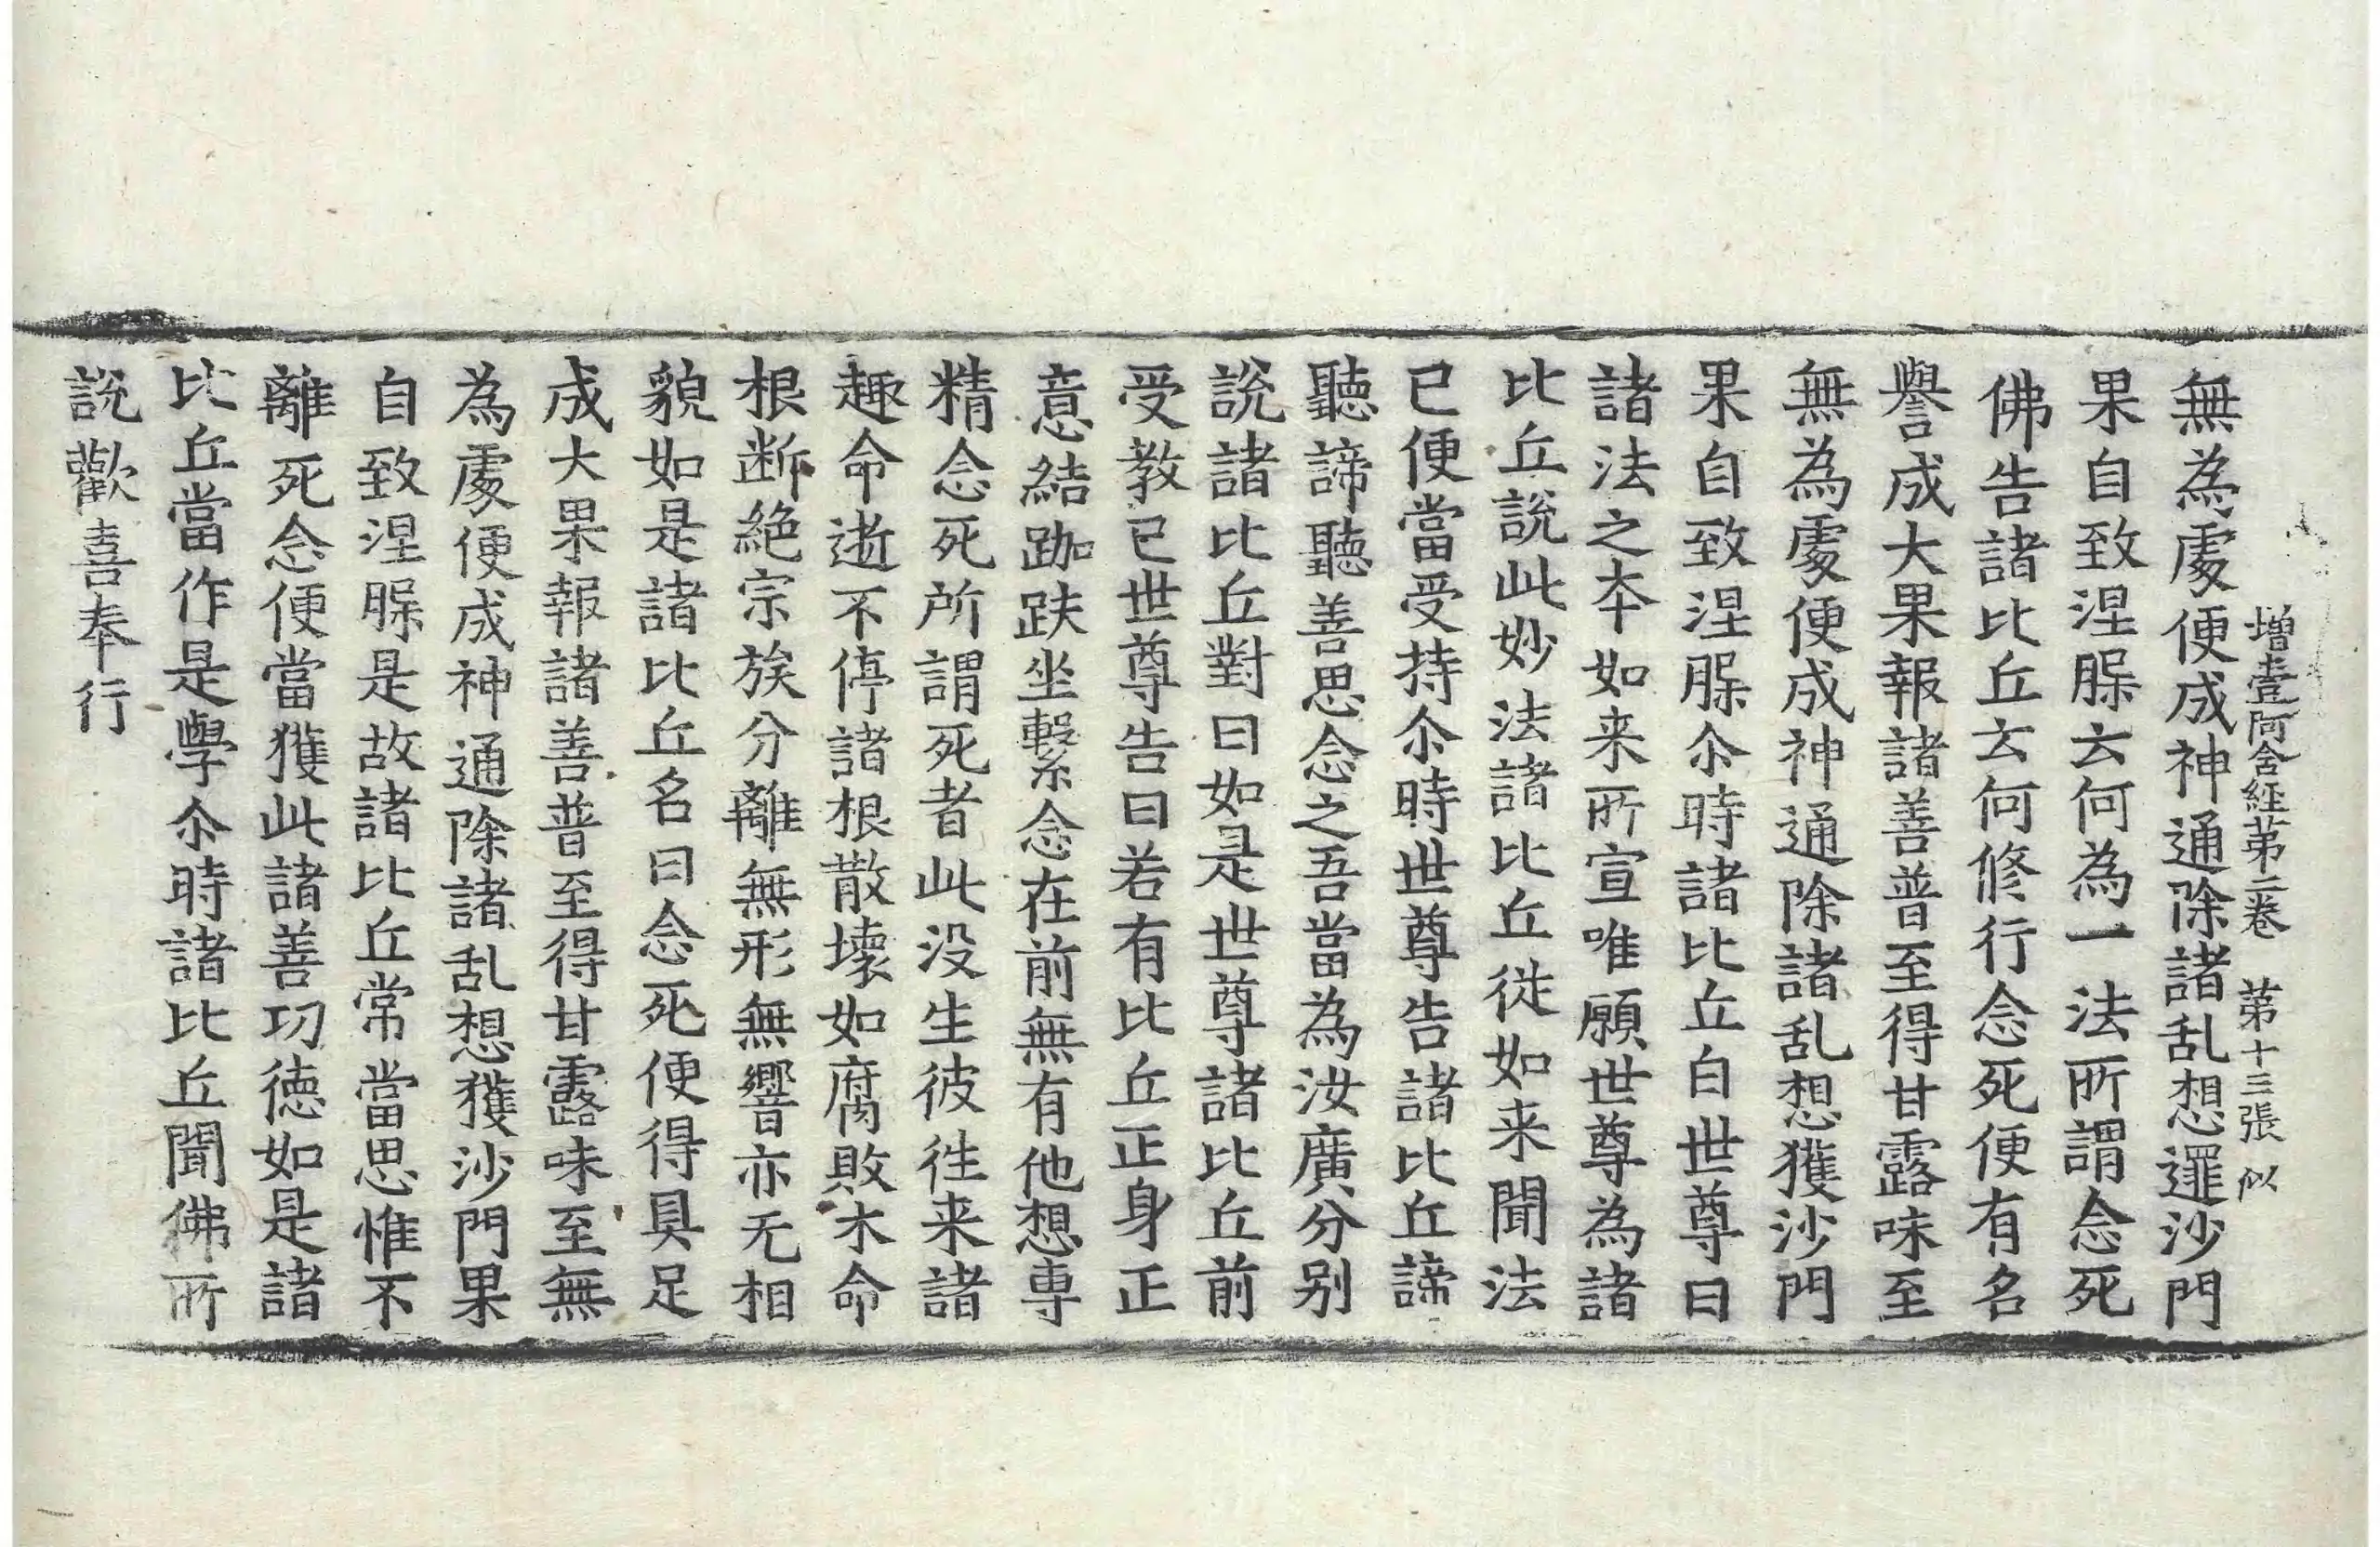 增壹阿含経苐二卷 苐十三張 似
無為處便成神通除諸乱想逻沙門
果自致涅脲云何為一法所謂念死
佛告諸比丘云何修行念死便有名
譽成大果報諸善普至得甘露味至
無為處便成神通除諸乱想獲沙門
果自致涅脲尒時諸比丘白世尊曰
諸法之夲如来所宣唯願世尊為諸
比丘說此妙法諸比丘従如来聞法
已便當受持尒時世尊告諸比丘諦
聽諦聽善思念之吾當為汝廣分别
說諸比丘對曰如是世尊諸比丘前
受教已世尊告曰若有比丘正身正
意結跏趺坐繫念在前無有他想専
精念死所謂死者此没生彼徃来諸
趣命逝不停諸根散壞如腐敗木命
根断絶宗族分離無形無響亦无相
貌如是諸比丘名曰念死便得具足
成大果報諸善普至得甘露味至無
為處便成神通除諸乱想獲沙門果
自致涅脲是故諸比丘常當思惟不
離死念便當獲此諸善功徳如是諸
比丘當作是學尒時諸比丘聞佛所
說歡喜奉行